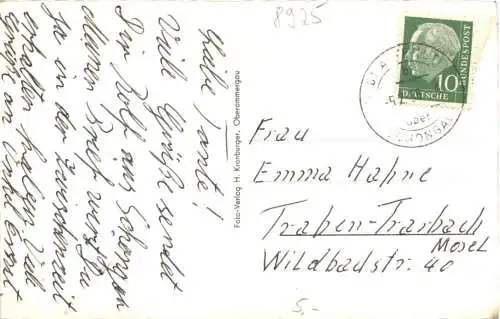 8925
Liebe Tante!
Viele Grüße sendet
Dir Rolf aus Schongau
Meinen Brief wirst Du
ja in der Zwischenzeit
erhalten haben. Viele
Grüße an Onkel Ernst
Foto-Verlag H. Kronburger, Oberammergau
DEUTSCHE
BUNDESPOST
10
über
SCHONGAU
Frau
Emma Hahne
Traben-Trarbach
Mosel
Wildbadstr. 40
5,-